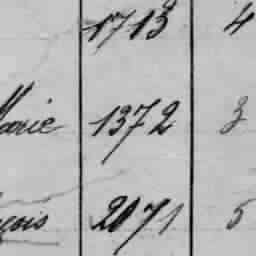 1713 4
Marie 1372 3
2071 5